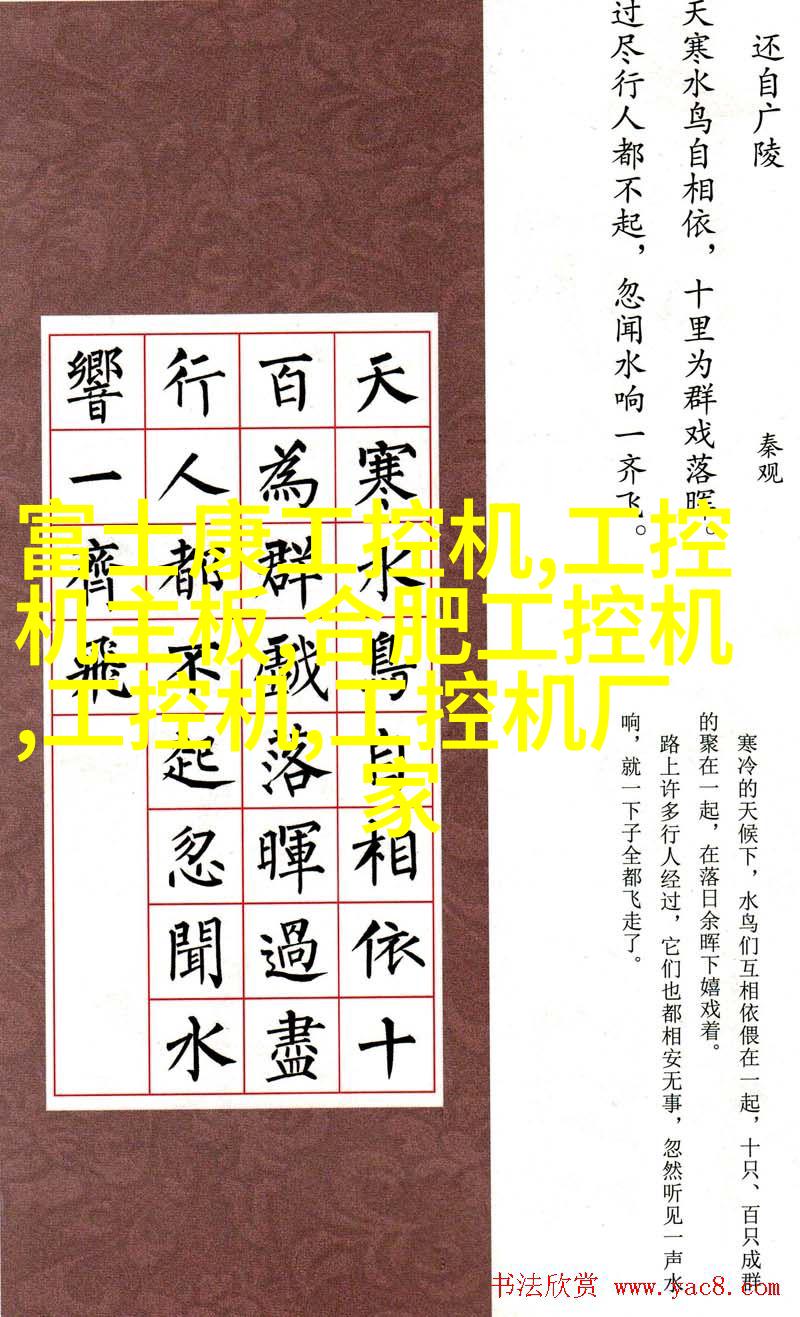 还自广陵
秦观
天寒水鸟自相依，十里为群戏落晖。
过尽行人都不起，忽闻水响一齐飞。
寒冷的天候下，水鸟们互相依偎在一起，十只、百只成群
的聚在一起，在落日余晖下嬉戏着。
路上许多行人经过，它们也都相安无事，忽然听见一声水
响，就一下子全都飞走了。
天寒水鳥自相依十
百為群戲落暉過盡
行人都不起忽聞水
響一齊飛
富士康工控机,工控
机主板,合肥工控机
,工控机,工控机厂
家
书法欣赏 www.yac8.com